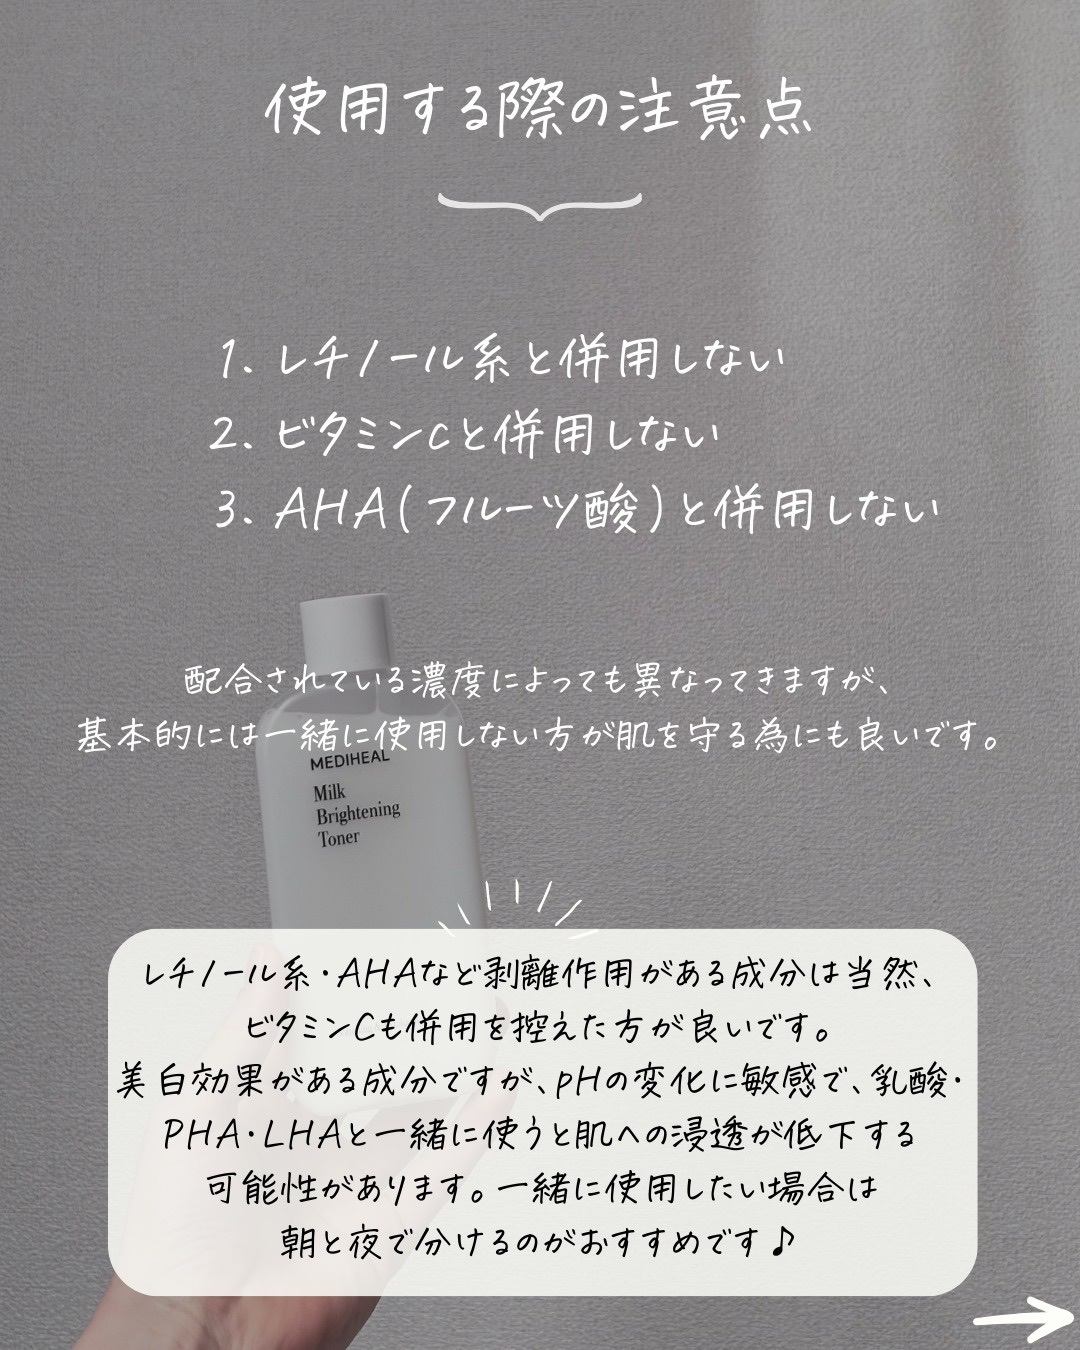 使用する際の注意点
1. レチノール系と併用しない
2. ビタミンCと併用しない
3. AHA(フルーツ酸)と併用しない
配合されている濃度によっても異なってきますが、
基本的には一緒に使用しない方が肌を守る為にも良いです。
MEDIHEAL
Milk
Brightening
Toner
レチノール系・AHAなど剥離作用がある成分は当然、
ビタミンCも併用を控えた方が良いです。
美白効果がある成分ですが、pHの変化に敏感で、乳酸・
PHA・LHAと一緒に使うと肌への浸透が低下する
可能性があります。一緒に使用したい場合は
朝と夜で分けるのがおすすめです♪